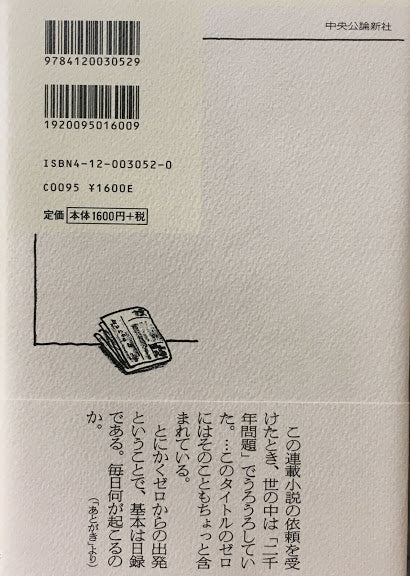 中央公論新社
9784120030529
1920095016009
ISBN4-12-003052-0
C0095 ¥1600E
定価 本体1600円+税
この連載小説の依頼を受
けたとき、世の中は「二千
年問題」でうろうろしてい
た。…このタイトルのゼロ
にはそのこともちょっと含
まれている。
とにかくゼロからの出発
ということで、基本は日録
である。毎日何が起こるの
か。
(「あとがき」より)